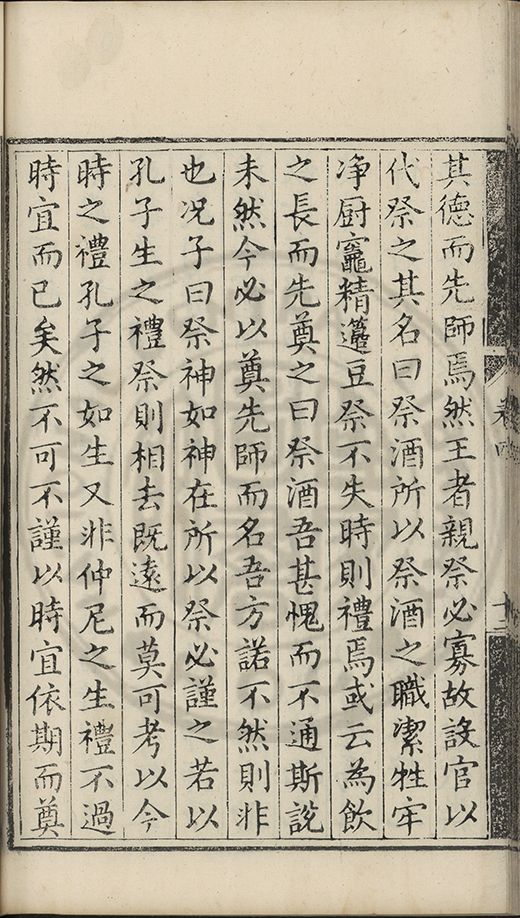 其德而先師焉然王者親祭必寡故設官以
代祭之其名曰祭酒所以祭酒之職潔牲牢
净厨竈精籩豆祭不失時則禮焉或云為飲
之長而先奠之曰祭酒吾甚愧而不通斯說
未然今必以奠先師而名吾方諾不然則非
也况子曰祭神如神在所以祭必謹之若以
孔子生之禮祭則相去既遠而莫可考以今
時之禮孔子之如生又非仲尼之生禮不過
時宜而已矣然不可不謹以時宜依期而奠
卷四